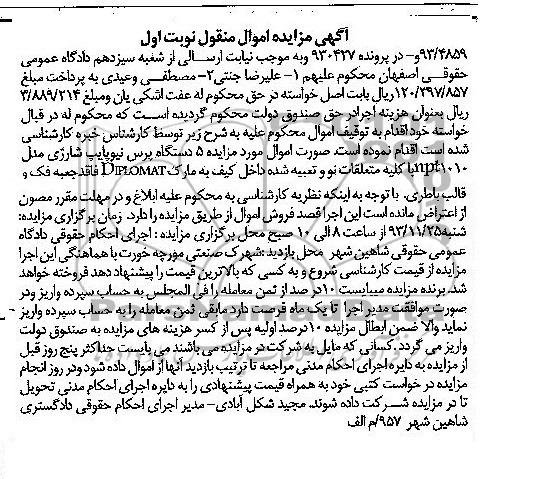 آگهی مزایده اموال منقول نوبت اول
۹۳/۴۸۵۹و- در پرونده ۹۳۰۴۲۷ وبه موجب نیابت ارسالی از شعبه سیزدهم دادگاه عمومی
حقوقی اصفهان محکوم علیهم ۱- علیرضا جنتی۲- مصطفی وعیدی به پرداخت مبلغ
۱۲۰/۲۹۷/۸۵۷ریال بابت اصل خواسته در حق محکوم له عفت اشکی یان ومبلغ ۳/۸۸۹/۲۱۴
ریال بعنوان هزینه اجرادر حق صندوق دولت محکوم گردیده است که محکوم له در قبال
خواسته خود اقدام به توقیف اموال محکوم علیه به شرح زیر توسط کارشناس خبره کارشناسی
شده است اقدام نموده است. صورت اموال مورد مزایده ۵ دستگاه پرس نیوپایپ شارژی مدل
npt۱۰۱۰با کلیه متعلقات نو و تعبیه شده داخل کیف به مارک DIPLOMAT فاقدجعبه فک و
قالب باطری. با توجه به اینکه نظریه کارشناسی به محکوم علیه ابلاغ و در مهلت مقرر مصون
از اعتراض مانده است این اجرا قصد فروش اموال از طریق مزایده را دارد. زمان برگزاری مزایده:
شنبه۹۳/۱۱/۲۵ از ساعت ۸ الی ۱۰ صبح محل برگزاری مزایده : اجرای احکام حقوقی دادگاه
عمومی حقوقی شاهین شهر محل بازدید :شهرک صنعتی مورچه خورت با هماهنگی این اجرا
مزایده از قیمت کارشناسی شروع و به کسی که بالاترین قیمت را پیشنهاد دهد فروخته خواهد
شد. برنده مزایده میبایست ۱۰درصد از ثمن معامله را فی المجلس به حساب سپرده واریز ودر
صورت موافقت مدیر اجرا تا یک ماه فرصت دارد مابقی ثمن معامله را به حساب سپرده واریز
نماید والا ضمن ابطال مزایده ۱۰درصد اولیه پس از کسر هزینه های مزایده به صندوق دولت
واریز می گردد.کسانی که مایل به شرکت در مزایده می باشند می بایست حداکثر پنج روز قبل
از مزایده به دایره اجرای احکام مدنی مراجعه تا ترتیب بازدید آنها از اموال داده شود ودر روز انجام
مزایده در خواست کتبی خود به همراه قیمت پیشنهادی را به دایره اجرای احکام مدنی تحویل
تا در مزایده شرکت داده شوند. مجید شکل آبادی- مدیر اجرای احکام حقوقی دادگستری
شاهین شهر ۹۵۷/م الف